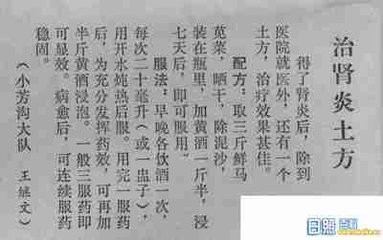 治肾炎土方
得了肾炎后，除到
医院就医外，还有一个
土方，治疗效果甚佳。
配方：取三斤鲜马
苋菜，晒干，除泥沙，
装在瓶里，加黄酒一斤半，浸
七天后，即可服用。
服法：早晚各饮酒一次，
每次二十毫升（或一盅子），
用开水炖热后服。用完一服药
后，为充分发挥药效，可再加
半斤黄酒浸泡。一般三服药即
可显效。病愈后，可连续服药
稳固。
（小芳沟大队 王 文）
日照